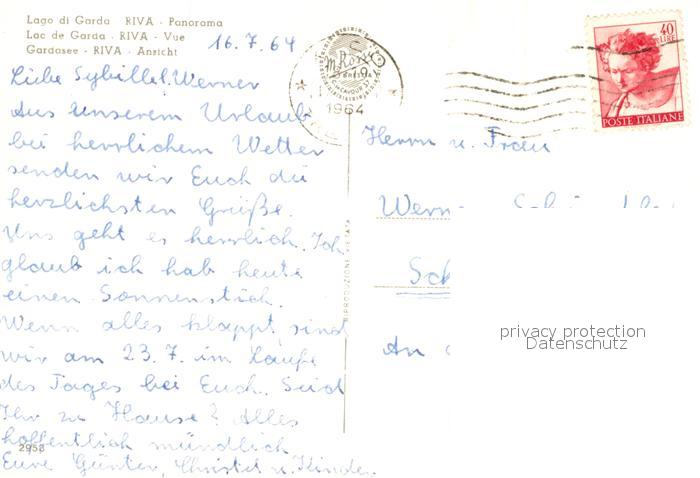 Lago di Garda RIVA - Panorama
Lac de Garda - RIVA - Vue
Gardasee - RIVA - Ansicht
16.7.64
Liebe Sybille u. Werner
Aus unserem Urlaub
bei herrlichem Wetter
senden wir Euch die
herzlichsten Grüße.
Uns geht es herrlich. Ich
glaub ich hab heute
einen Sonnenstich.
Wenn alles klappt sind
wir am 23.7. im Laufe
des Tages bei Euch. Seid
Ihr zu Hause? Alles
hoffentlich mündlich
Eure Günter, Christel u. Kinder
2958
RIPRODUZIONE VIETATA
1964
40
LIRE
POSTE ITALIANE
Herrn u. Frau
Wern
Sch
An
privacy protection
Datenschutz